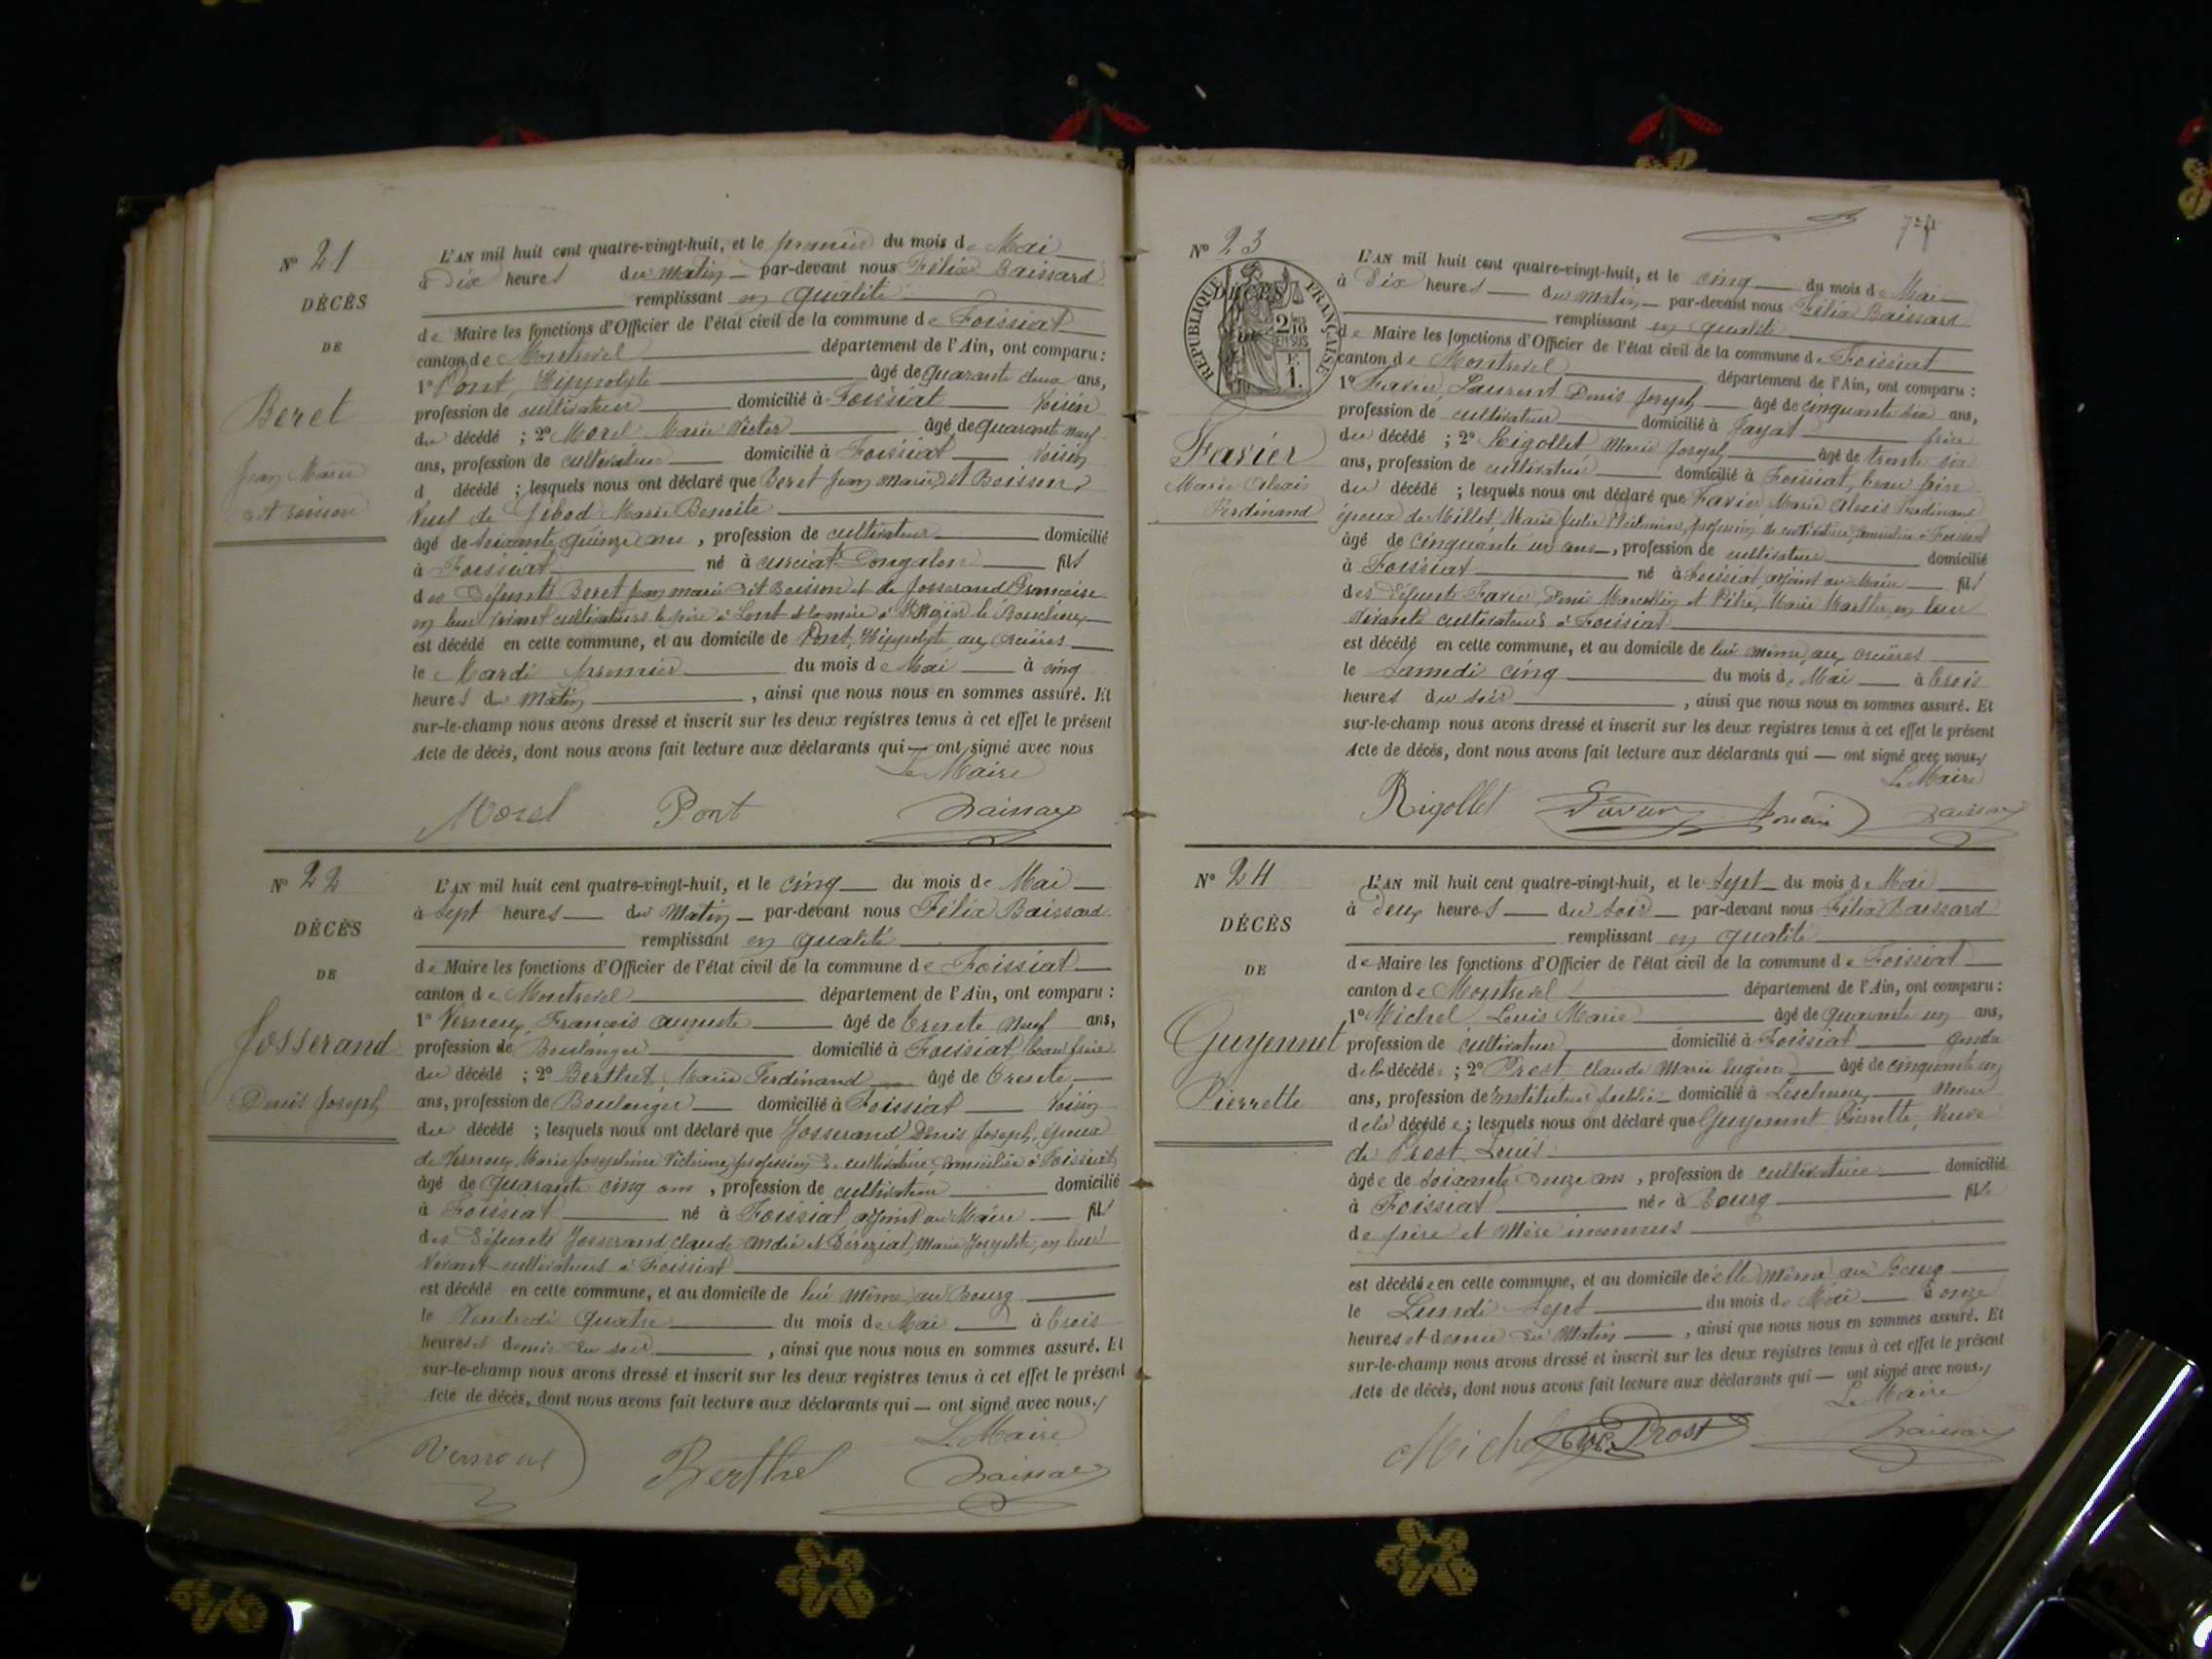 N° 21
DÉCÈS
DE
Beret
Jean Marie
dit Boisson
L'AN mil huit cent quatre-vingt-huit, et le premier du mois de Mai
à Dix heures du matin par-devant nous Félix Baissard
remplissant en qualité
de Maire les fonctions d'Officier de l'état civil de la commune de Foissiat
canton de Montrevel département de l'Ain, ont comparu :
1° Pont, Hippolyte âgé de quarante deux ans,
profession de cultivateur domicilié à Foissiat voisin
du décédé ; 2° Morel Marie Victor âgé de quarante neuf
ans, profession de cultivateur domicilié à Foissiat voisin
d décédé ; lesquels nous ont déclaré que Beret Jean Marie dit Boisson
Veuf de Jibod Marie Benoite
âgé de soixante quinze ans, profession de cultivateur domicilié
à Foissiat né à Curciat Dongalon fils
des défunts Beret Jean Marie dit Boisson et de Josserand Françoise
en leur vivant cultivateurs le père à Lent et la mère à St Trivier le Boucheux
est décédé en cette commune, et au domicile de Pont, Hippolyte, aux Orcières
le Mardi premier du mois de Mai à cinq
heures du Matin , ainsi que nous nous en sommes assuré. Et
sur-le-champ nous avons dressé et inscrit sur les deux registres tenus à cet effet le présent
Acte de décès, dont nous avons fait lecture aux déclarants qui — ont signé avec nous
Le Maire
Morel Pont Baissard
N° 22
DÉCÈS
DE
Josserand
Denis Joseph
L'AN mil huit cent quatre-vingt-huit, et le cinq du mois de Mai
à Sept heures du Matin par-devant nous Félix Baissard
remplissant en qualité
de Maire les fonctions d'Officier de l'état civil de la commune de Foissiat
canton de Montrevel département de l'Ain, ont comparu :
1° Vernoux, François Auguste âgé de trente neuf ans,
profession de Boulanger domicilié à Foissiat, beau frère
du décédé ; 2° Berthet, Marie Ferdinand âgé de trente
ans, profession de Boulanger domicilié à Foissiat voisin
du décédé ; lesquels nous ont déclaré que Josserand Denis Joseph, époux
de Vernoux Marie Joséphine Victorine, profession de cultivatrice, domiciliée à Foissiat
âgé de quarante cinq ans, profession de cultivateur domicilié
à Foissiat né à Foissiat, adjoint au Maire fils
des défunts Josserand Claude André et Béréziat, Marie Josephte, en leur
vivant cultivateurs à Foissiat
est décédé en cette commune, et au domicile de lui même, au Bourg
le Vendredi Quatre du mois de Mai à trois
heures et demie du soir , ainsi que nous nous en sommes assuré. Et
sur-le-champ nous avons dressé et inscrit sur les deux registres tenus à cet effet le présent
Acte de décès, dont nous avons fait lecture aux déclarants qui — ont signé avec nous./
Le Maire
Vernoux Berthet Baissard
N° 23
RÉPUBLIQUE FRANÇAISE
DÉCÈS
2/10
EN SUS
F.
1.
Favier
Marie Alexis
Ferdinand
L'AN mil huit cent quatre-vingt-huit, et le cinq du mois de Mai
à Dix heures du matin par-devant nous Félix Baissard
remplissant en qualité
de Maire les fonctions d'Officier de l'état civil de la commune de Foissiat
canton de Montrevel département de l'Ain, ont comparu :
1° Favier, Laurent Denis Joseph âgé de cinquante six ans,
profession de cultivateur domicilié à Jayat frère
du décédé ; 2° Rigollet Marie Joseph âgé de trente six
ans, profession de cultivateur domicilié à Foissiat, beau frère
du décédé ; lesquels nous ont déclaré que Favier, Marie Alexis Ferdinand
époux de Millet, Marie Julie Philomine, profession de cultivatrice, domiciliée à Foissiat
âgé de cinquante un ans, profession de cultivateur domicilié
à Foissiat né à Foissiat, adjoint au Maire fils
des défunts Favier, Denis Marcellin et Pitre, Marie Marthe, en leur
vivants cultivateurs à Foissiat
est décédé en cette commune, et au domicile de lui même, aux Orcières
le Samedi cinq du mois de Mai à trois
heures du soir , ainsi que nous nous en sommes assuré. Et
sur-le-champ nous avons dressé et inscrit sur les deux registres tenus à cet effet le présent
Acte de décès, dont nous avons fait lecture aux déclarants qui — ont signé avec nous./
Le Maire
Rigollet Favier Baissard
N° 24
DÉCÈS
DE
Guyennet
Pierrette
L'AN mil huit cent quatre-vingt-huit, et le Sept du mois de Mai
à Deux heures du soir par-devant nous Félix Baissard
remplissant en qualité
de Maire les fonctions d'Officier de l'état civil de la commune de Foissiat
canton de Montrevel département de l'Ain, ont comparu :
1° Michel Louis Marie âgé de quarante un ans,
profession de cultivateur domicilié à Foissiat gendre
de la décédée ; 2° Prost, Claude Marie Eugène âgé de cinquante un
ans, profession de instituteur public domicilié à Lescheroux neveu
de la décédée ; lesquels nous ont déclaré que Guyennet Pierrette, Veuve
de Prost Louis
âgée de soixante douze ans, profession de cultivatrice domicilié
à Foissiat née à Bourg fille
de père et Mère inconnus
est décédée en cette commune, et au domicile d'elle même au Bourg
le Lundi Sept du mois de Mai à onze
heures et demie du Matin , ainsi que nous nous en sommes assuré. Et
sur-le-champ nous avons dressé et inscrit sur les deux registres tenus à cet effet le présent
Acte de décès, dont nous avons fait lecture aux déclarants qui — ont signé avec nous./
Le Maire
Michel Prost Baissard